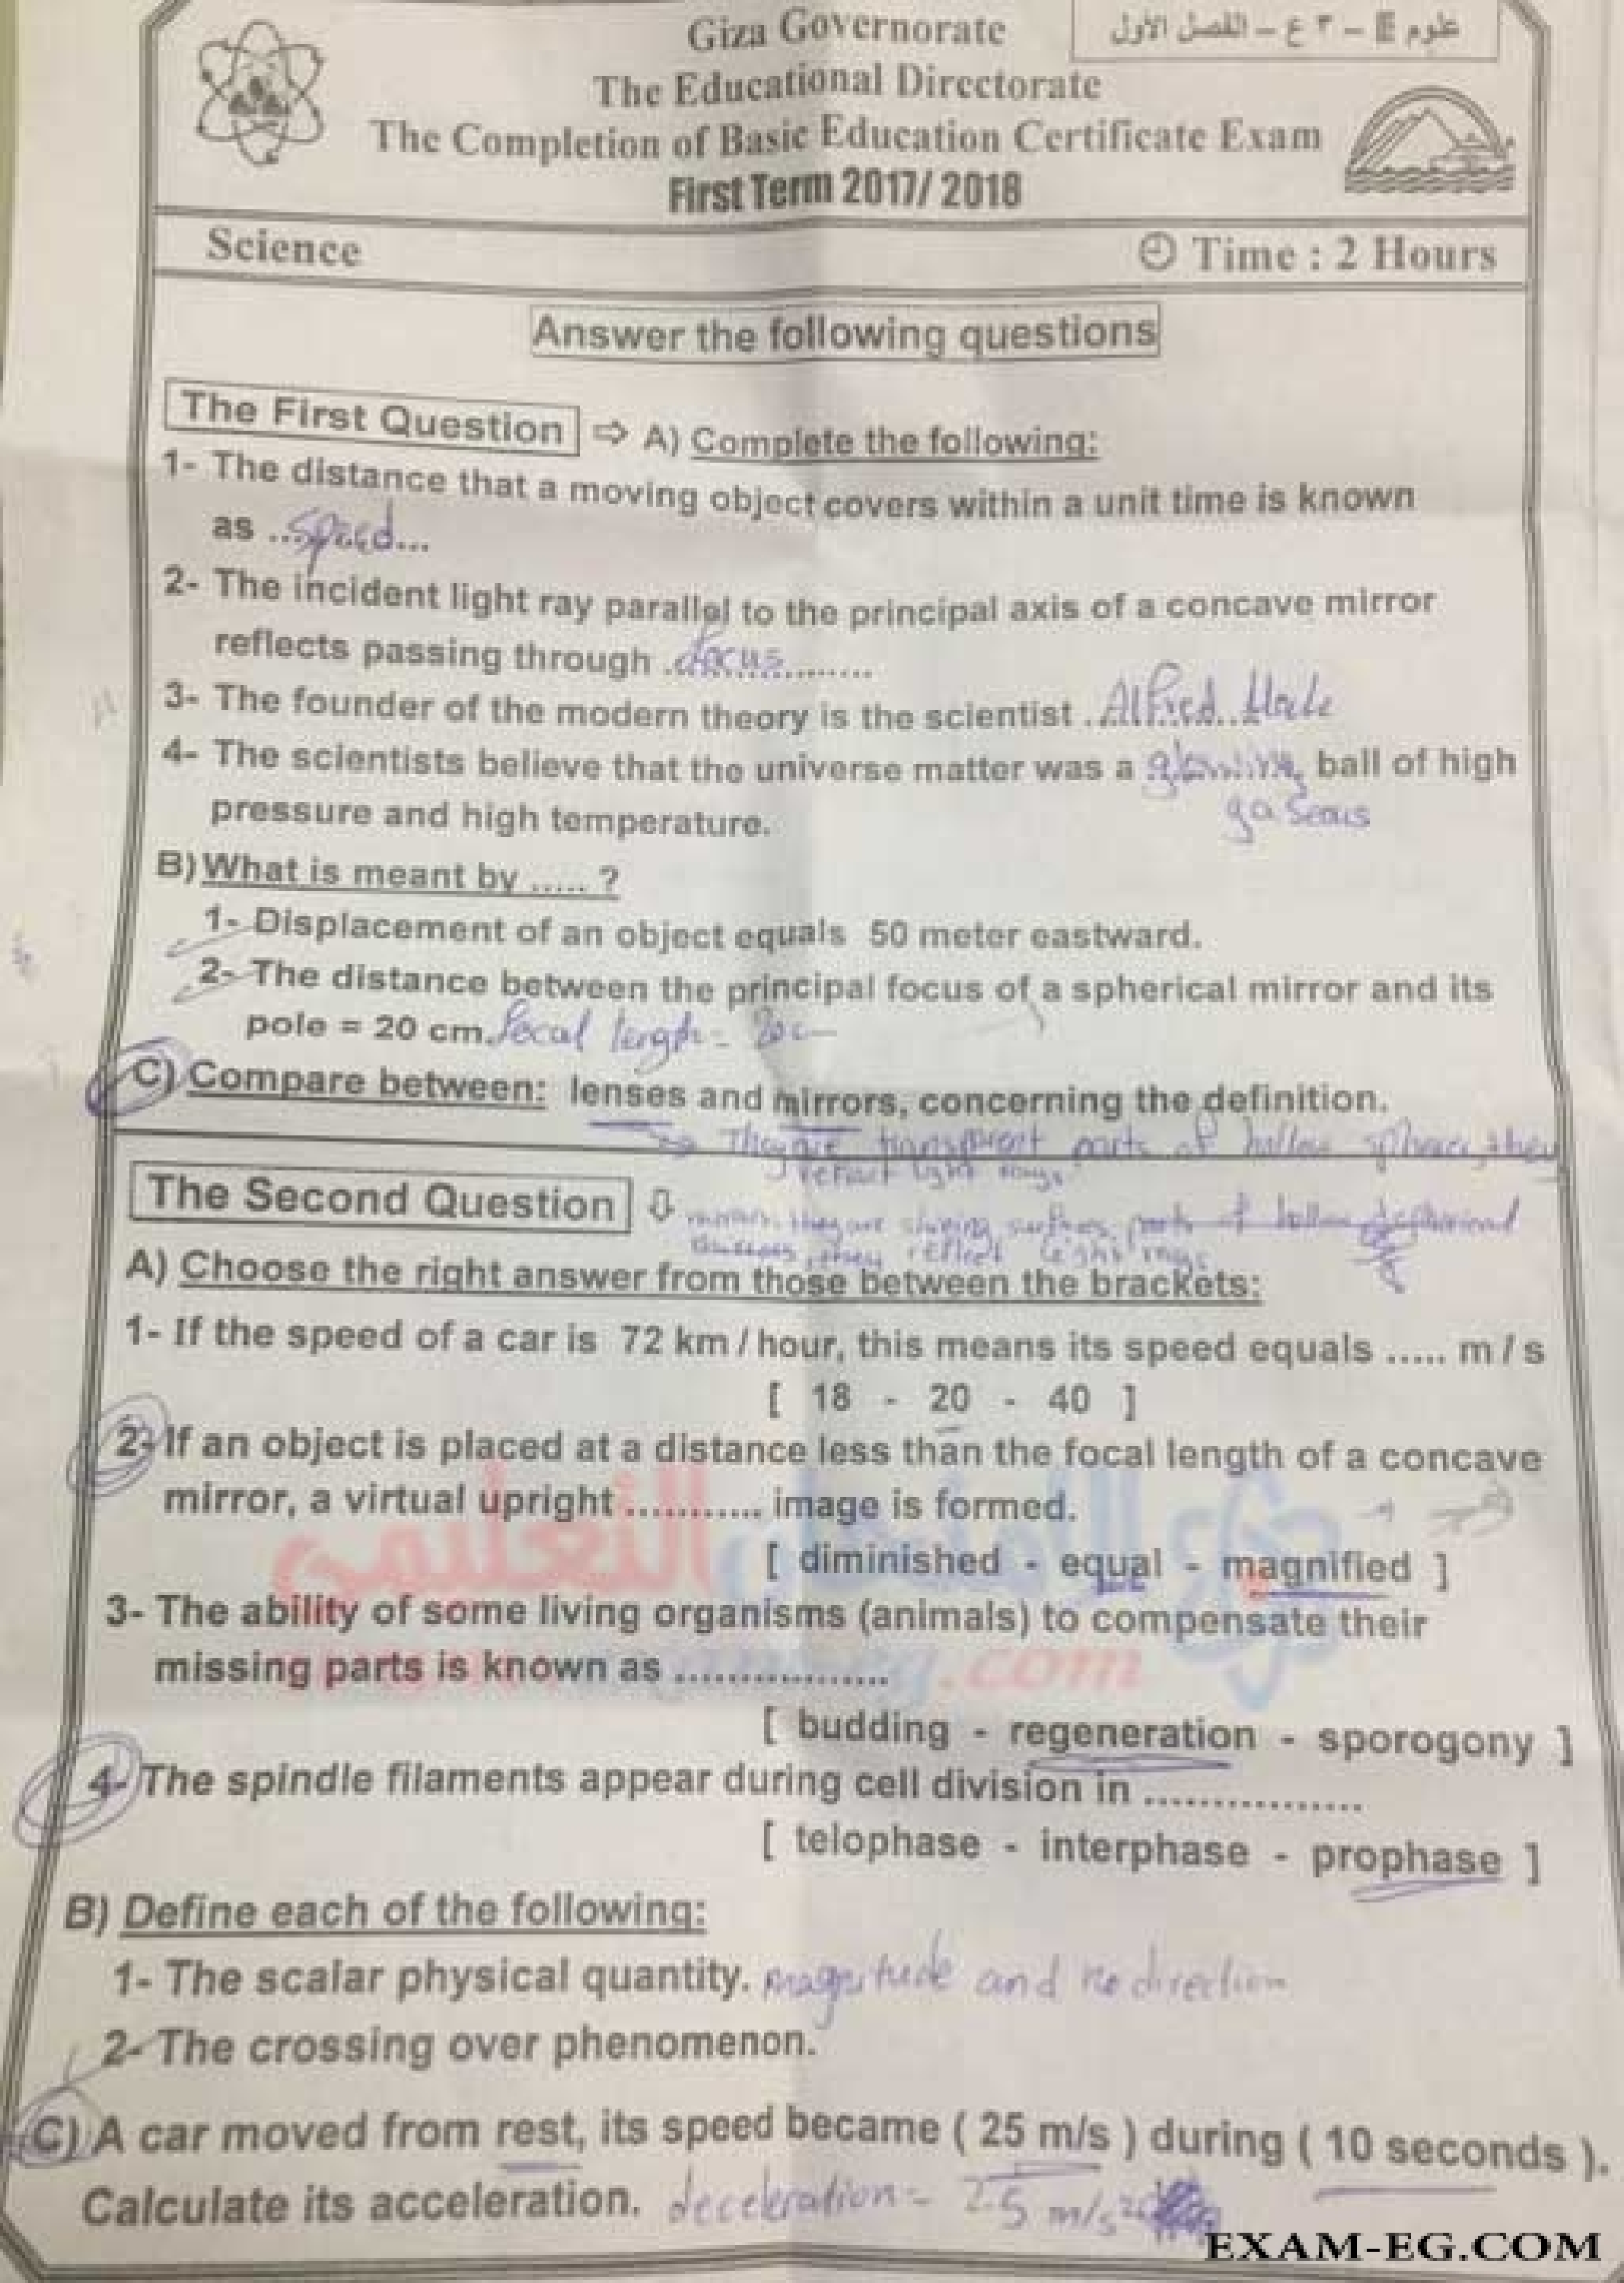 Giza Governorate
علوم E – ٣ ع – الفصل الأول
The Educational Directorate
The Completion of Basic Education Certificate Exam
First Term 2017/ 2018
Science
Time : 2 Hours
Answer the following questions
The First Question ⇨ A) Complete the following:
1- The distance that a moving object covers within a unit time is known
as ..speed...
2- The incident light ray parallel to the principal axis of a concave mirror
reflects passing through .focus.........
3- The founder of the modern theory is the scientist ..Alfred..
4- The scientists believe that the universe matter was a glowing ball of high
gaseous
pressure and high temperature.
B) What is meant by ..... ?
1- Displacement of an object equals 50 meter eastward.
2- The distance between the principal focus of a spherical mirror and its
pole = 20 cm. focal length =
C) Compare between: lenses and mirrors, concerning the definition.
They are transparent parts of hollow they
refract light rays
The Second Question ⇩
they are shining surfaces parts of hollow
they reflect light rays
A) Choose the right answer from those between the brackets:
1- If the speed of a car is 72 km / hour, this means its speed equals ..... m / s
[ 18 - 20 - 40 ]
2- If an object is placed at a distance less than the focal length of a concave
mirror, a virtual upright ........... image is formed.
[ diminished - equal - magnified ]
3- The ability of some living organisms (animals) to compensate their
missing parts is known as .................
[ budding - regeneration - sporogony ]
4- The spindle filaments appear during cell division in ................
[ telophase - interphase - prophase ]
B) Define each of the following:
1- The scalar physical quantity. magnitude and no direction
2- The crossing over phenomenon.
C) A car moved from rest, its speed became ( 25 m/s ) during ( 10 seconds ).
Calculate its acceleration. deceleration = 2.5 m/s²
EXAM-EG.COM